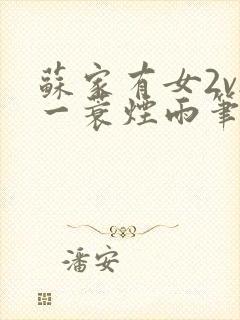 蘇家有女2v
一蓑煙雨筆
潘安